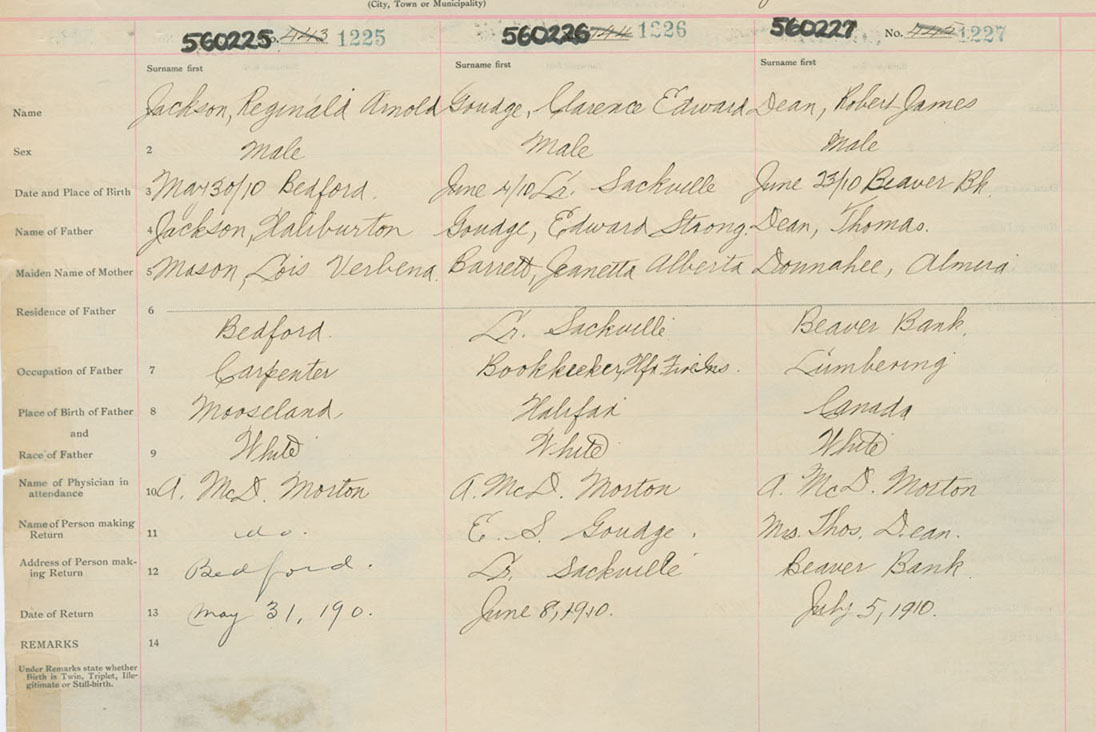 (City, Town or Municipality)
560225 No. 443 1225 560226 444 1226 560227 No. 445 1227
Surname first Surname first Surname first
Name Jackson, Reginald Arnold Goudge, Clarence Edward Dean, Robert James
Sex 2 Male Male Male
Date and Place of Birth 3 May 30/10 Bedford. June 4/10 Lr. Sackville June 23/10 Beaver Bk.
Name of Father 4 Jackson, Haliburton Goudge, Edward Strong. Dean, Thomas.
Maiden Name of Mother 5 Mason, Lois Verbena. Barrett, Jeanetta Alberta Dounahee, Almira
Residence of Father 6 Bedford. Lr. Sackville Beaver Bank.
Occupation of Father 7 Carpenter Bookkeeper, Hfx Fire Ins. Lumbering
Place of Birth of Father 8 Mooseland Halifax Canada
and
Race of Father 9 White White White
Name of Physician in
attendance 10 A. McD. Morton A. McD. Morton A. McD. Morton
Name of Person making
Return 11 do. E. S. Goudge. Mrs. Thos. Dean.
Address of Person mak-
ing Return 12 Bedford. Lr. Sackville Beaver Bank.
Date of Return 13 May 31, 190. June 8, 1910. July 5, 1910.
REMARKS 14
Under Remarks state whether
Birth is Twin, Triplet, Ille-
gitimate or Still-birth.